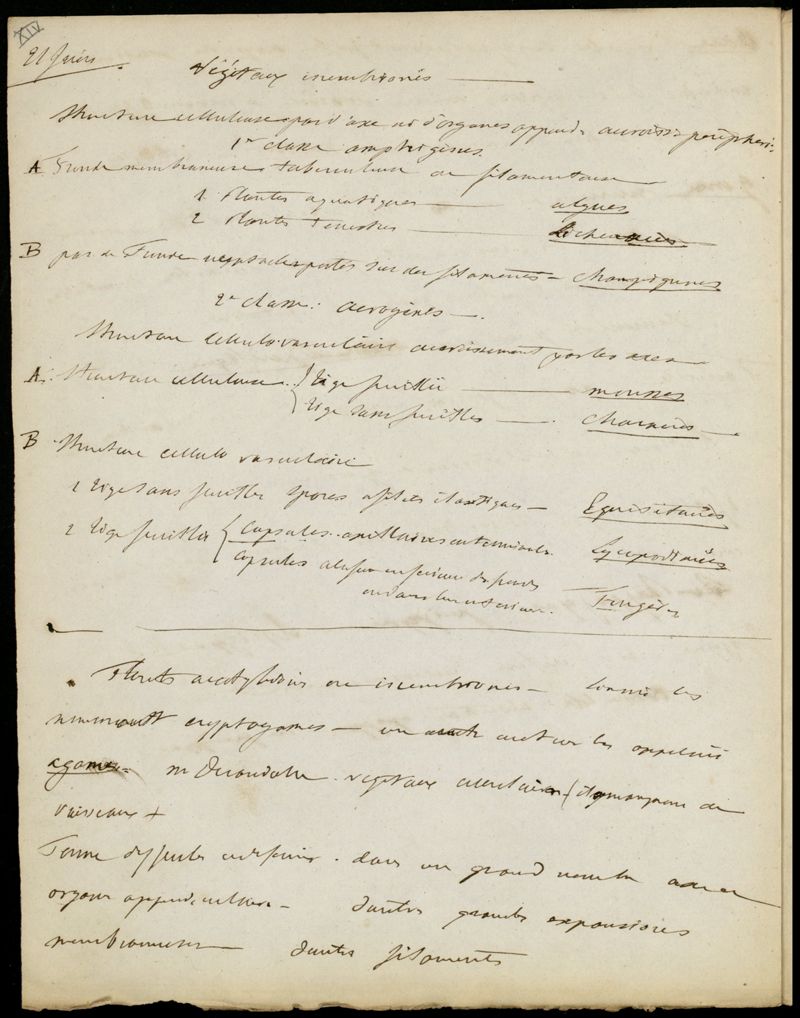 XIV
21 Juin
Végétaux inembrionés
Structure celluleuse pas d'axe ni d'organes append. accroiss. peripheri.
1re classe amphigènes.
A. Fronde membraneuse tuberculeuse ou filamenteuse
1 Plantes aquatiques — algues
2 Plantes terrestres — Lichenées
B pas de Fronde receptacles portés sur des filaments — champignons
2e classe : acrogènes —.
Structure cellulo-vasculaire accroissement par les axes
A. Structure celluleuse. Tige feuillée — mousses
Tige sans feuilles —. Characées —
B Structure cellulo vasculaire
1 Tige sans feuilles spores élastiques — Equisétacées
2 Tige feuillée Capsules axillaires ou terminales. Lycopodiacées
Capsules à la face inférieure des frondes
ou dans leur intérieur. Fougères
Plantes acotylédonés ou inembrionés — Linné les
nommait cryptogames — un autre auteur les appelait
agames — M Decandolle. végétaux cellulaires (ils manquent de
vaisseaux +
Forme difficile à définir. dans un grand nombre axe et
organes appendiculaires — d'autres grandes expansions
membraneuses — d'autres filaments